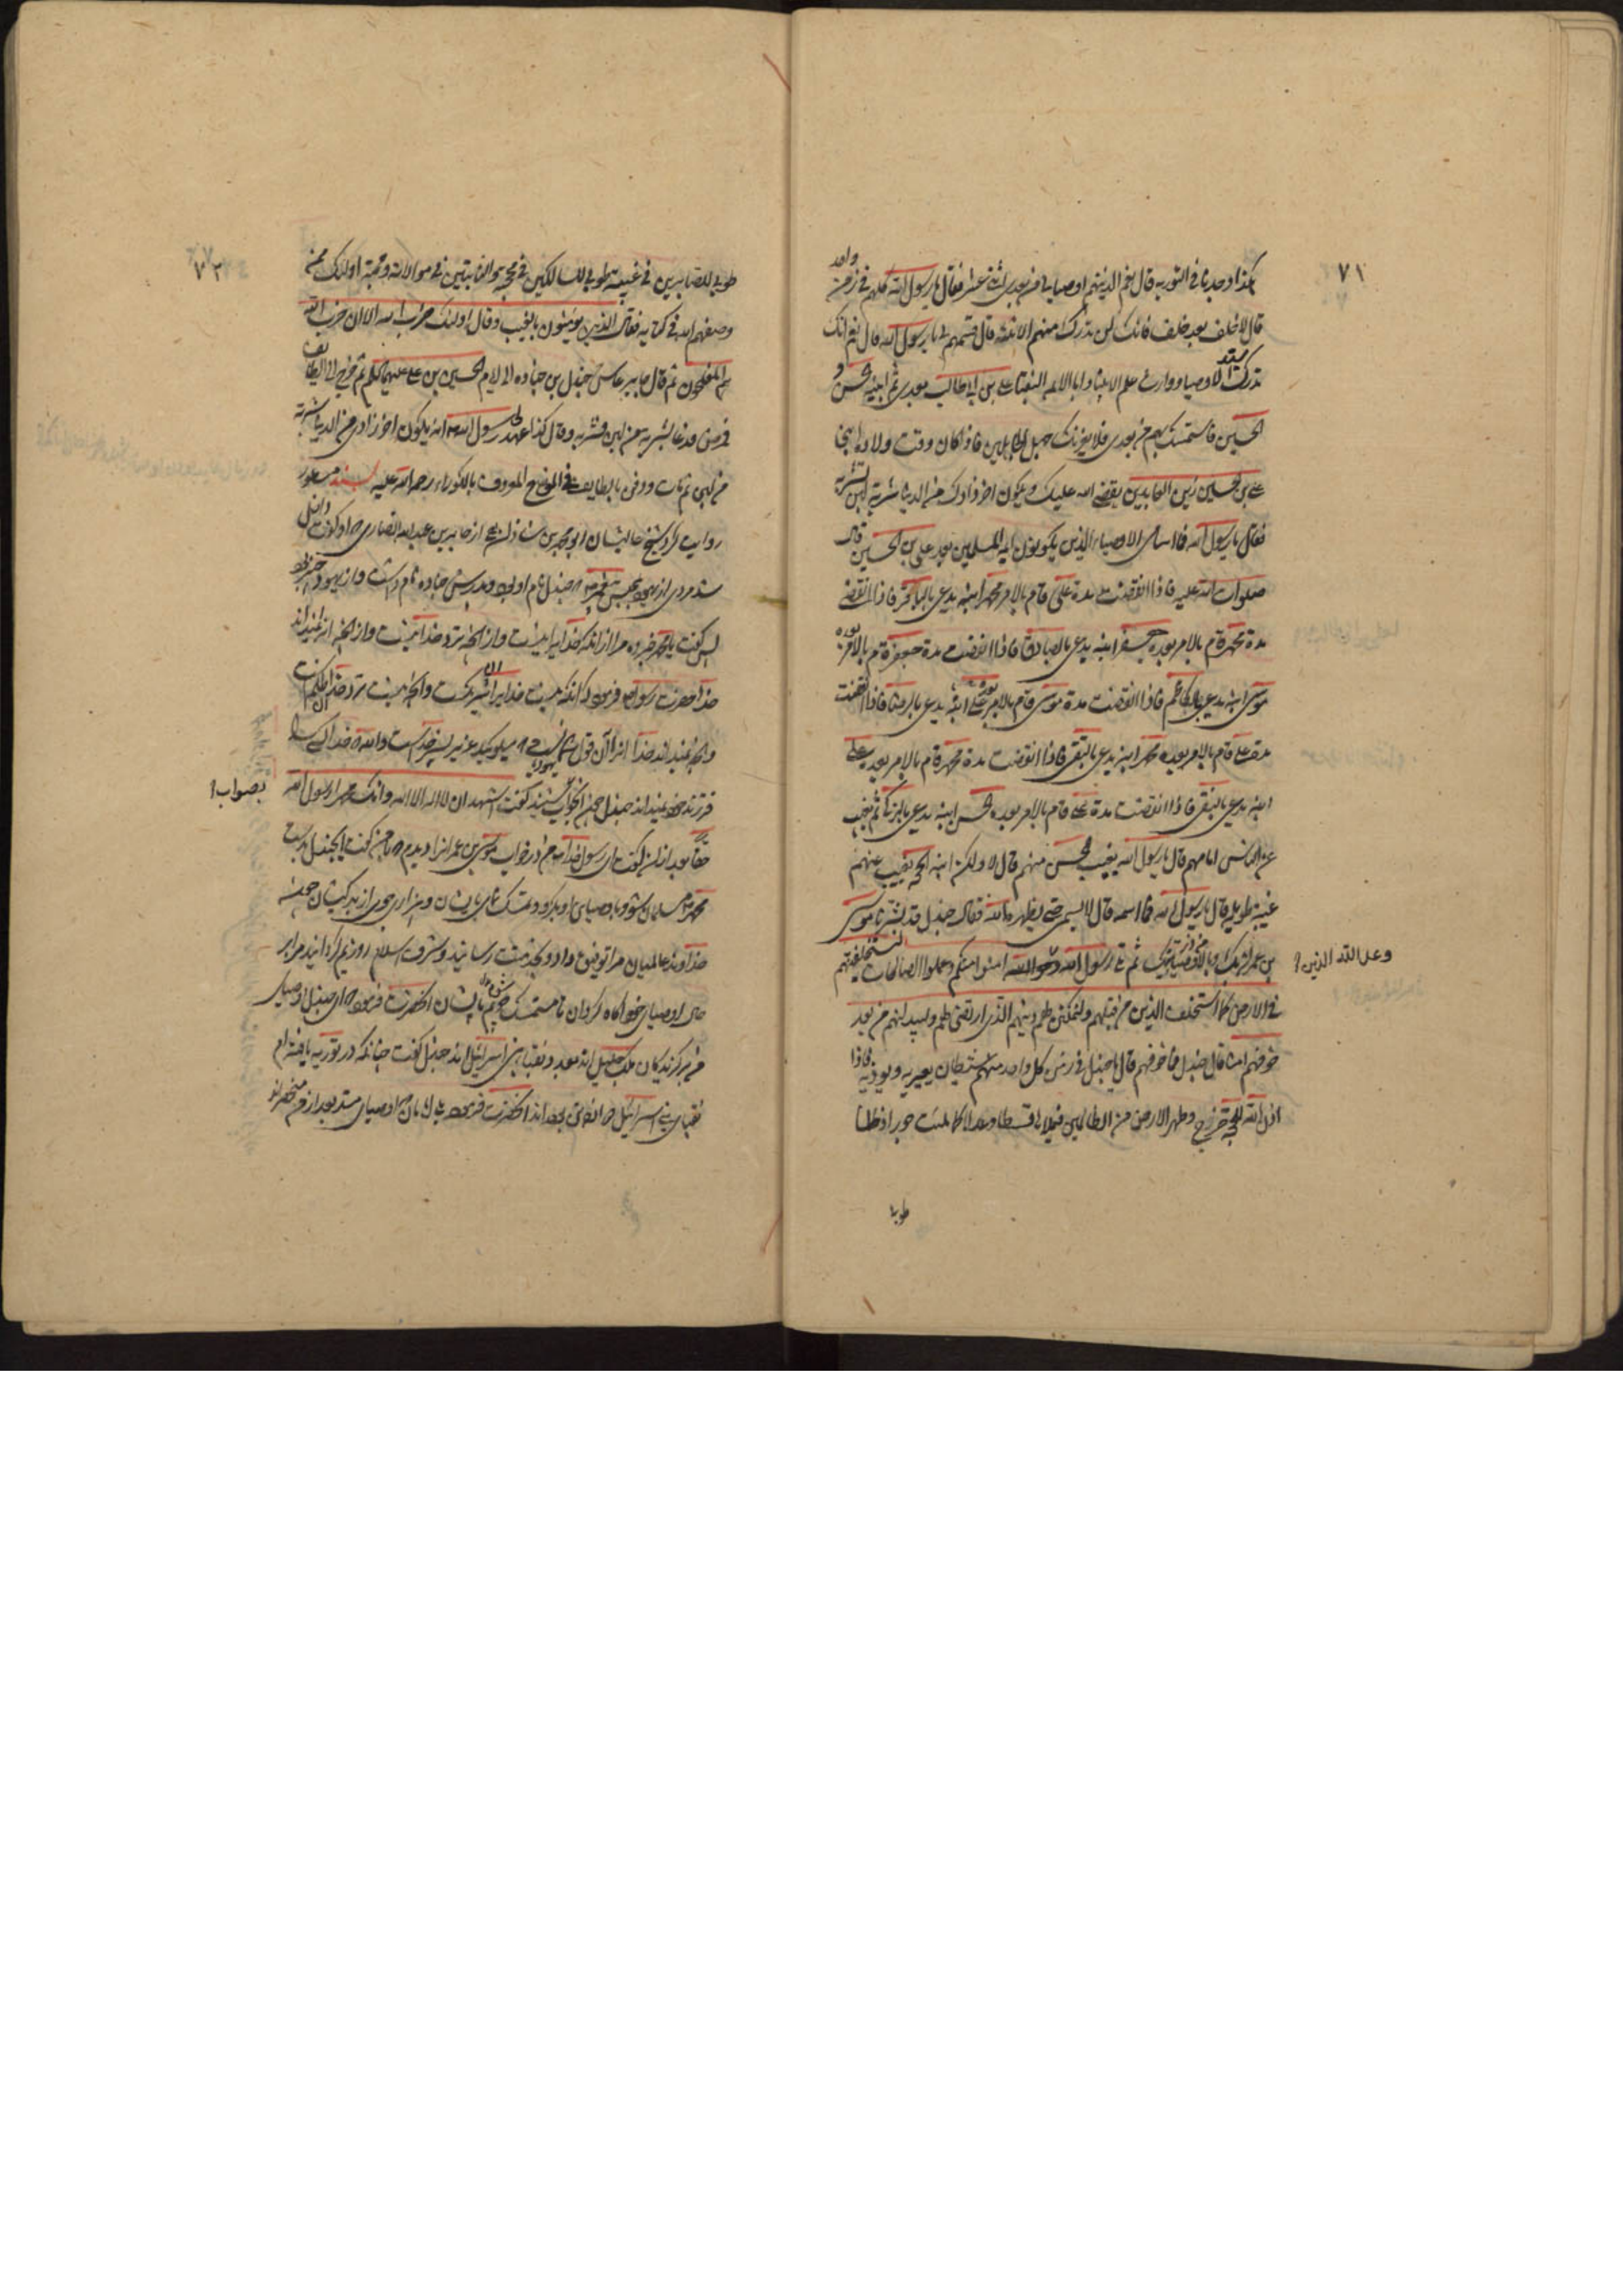 ٧١
هكذا وجدنا في التورية قال نعم الائمة اوصيائي من بعدي اثني عشر فقال يا رسول الله كلهم في زمن واحد
قال لا خلف بعد خلف فانك لن تدرك منهم الا ثلثة قال فسمهم لي يا رسول الله قال نعم انك
تدرك سيد الاوصياء ووارث علم الانبياء وابا الائمة النقباء علي بن ابي طالب بعدي ثم ابنيه الحسن و
الحسين فاستمسك بهم من بعدي فلا يغرنك جهل الجاهلين فاذا كان وقت ولادة ابني
علي بن الحسين زين العابدين يقضي الله عليك ويكون اخر زادك من الدنيا شربة لبن تشربه
فقال يا رسول الله فما اسامي الاوصياء الذين يكونون ائمة المسلمين بعد علي بن الحسين قال
صلوات الله عليه فاذا انقضت مدة علي قام بالامر محمد ابنه يدعى بالباقر فاذا انقضت
مدة محمد قام بالامر بعده جعفر ابنه يدعى بالصادق فاذا انقضت مدة جعفر قام بالامر بعده
موسى ابنه يدعى بالكاظم فاذا انقضت مدة موسى قام بالامر بعده علي ابنه يدعى بالرضا فاذا انقضت
مدة علي قام بالامر بعده محمد ابنه يدعى بالتقي فاذا انقضت مدة محمد قام بالامر بعده علي
ابنه يدعى بالنقي فاذا انقضت مدة علي قام بالامر بعده الحسن ابنه يدعى بالزكي ثم يغيب
عن الناس امامهم قال يا رسول الله يغيب الحسن منهم قال لا ولكن ابنه الحجة يغيب عنهم
غيبة طويلة قال يا رسول الله فما اسمه قال لا يسمى حتى يظهره الله فقال جندل قد بشرنا موسى
بن عمران بك وبالاوصياء من ذريتك ثم تلى رسول الله وعد الله امنوا منكم وعملوا الصالحات ليستخلفنهم
وعد الله الذين؟
في الارض كما استخلف الذين من قبلهم وليمكنن لهم دينهم الذي ارتضى لهم وليبدلنهم من بعد
خوفهم امنا قال جندل فما خوفهم قال يا جندل في زمن كل واحد منهم شيطان يعتريه ويؤذيه فاذا
اذن الله للحجة خرج وطهر الارض من الظالمين فيملاها قسطا وعدلا كما ملئت جورا وظلما
طوبى
٧٢
طوبى للصابرين في غيبته طوبى للسالكين في محجته والثابتين في موالاته ومحبته اولئك ممن
وصفهم الله في كتابه فقال الذين يؤمنون بالغيب وقال اولئك حزب الله الا ان حزب الله
هم المفلحون ثم قال جابر عاش جندل بن جناده الى ايام الحسين بن علي عليهما السلم ثم خرج الى الطائف
فمرض فدعا بشربة من لبن فشربه وقال كذا عهد الي رسول الله انه يكون اخر زادي من الدنيا شربة
من لبن ثم مات ودفن بالطايف في الموضع المعروف بالكوراء رحمة الله عليه بسند مسطور
روايت كرد شيخ عاليشان ابو محمد بن شاذان از جابر بن عبد الله انصاري كه او گفت داخل
شد مردي از يهود بمجلس پيغمبر كه جندل نام او بود و پدرش جناده نام داشت و از يهود خيبر بود
پس گفت يا محمد خبر ده مرا از آنكه خدايرا نيست و از آنچه نزد خدا نيست و از آنچه نميداند
خدا حضرت رسول فرمود كه آنكه نيست خدايرا آن شريكست و آنچه نيست نزد خدا ظلم است
و آنچه نميداند خدا انرا آن قول شما يهود است كه ميگوييد عزير پسر خداست والله كه خدا كسي را
فرزند خود نميداند جندل چون اين جواب شنيد گفت اشهد ان لا اله الا الله وانك محمدا رسول الله
بصواب؟
حقا بعد از ان گفت اي رسول خدا من در خواب موسى بن عمران را ديدم كه با من گفت اي جندل بدست
محمد مسلمان شو و باوصياي او بگرو و تمسك نماي بايشان و بيزاري جوي از بدكيشان چون
خداوند عالميان مرا توفيق داد و بخدمتت رسانيد و شرف اسلام روزيم گردانيد مرا بر
حال اوصياي خود آگاه گردان تا متمسك شوم بايشان آنحضرت فرمود كه اي جندل اوصياي
من برگزيدگان ملك جليل اند بعدد نقباء بني اسرائيل اند جندل گفت چنانكه در تورية يافته ام
نقباي بني اسرائيل دوازده تن بوده اند آنحضرت فرمود بلي امامان كه اوصياي منند بعد از من منحصرند